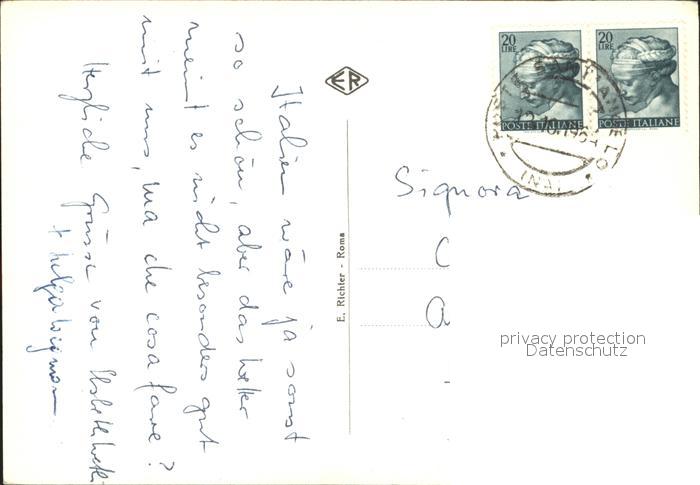 Italien wäre ja sonst
so schön, aber das Wetter
meint es nicht besonders gut
mit uns, ma che cosa fare?
Herzliche Grüsse von
+ Helga
E. Richter - Roma
ER
20
LIRE
POSTE ITALIANE
20
LIRE
POSTE ITALIANE
SANT'ANGELO
(NA)
Signora
privacy protection
Datenschutz